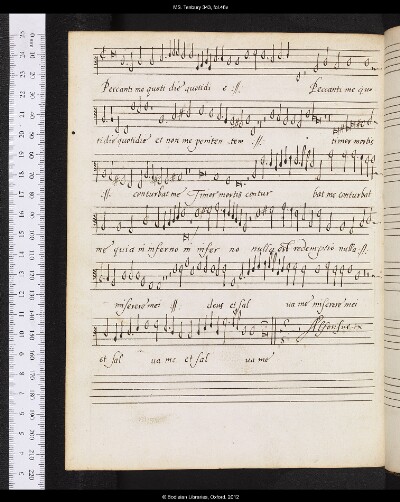 MS. Tenbury 343, fol.48v
Peccanti me quoti die quotidi e :||: Peccanti me quo
ti die quotidie et non me peniten tem :||: timor mortis
:||: conturbat me Timor mortis contur bat me conturbat
me quia in inferno in infer no nulla est redemptio nulla :||:
miserere mei :||: deus et sal ua me miserere mei
et sal ua me et sal ua me
© Bodleian Libraries, Oxford, 2012